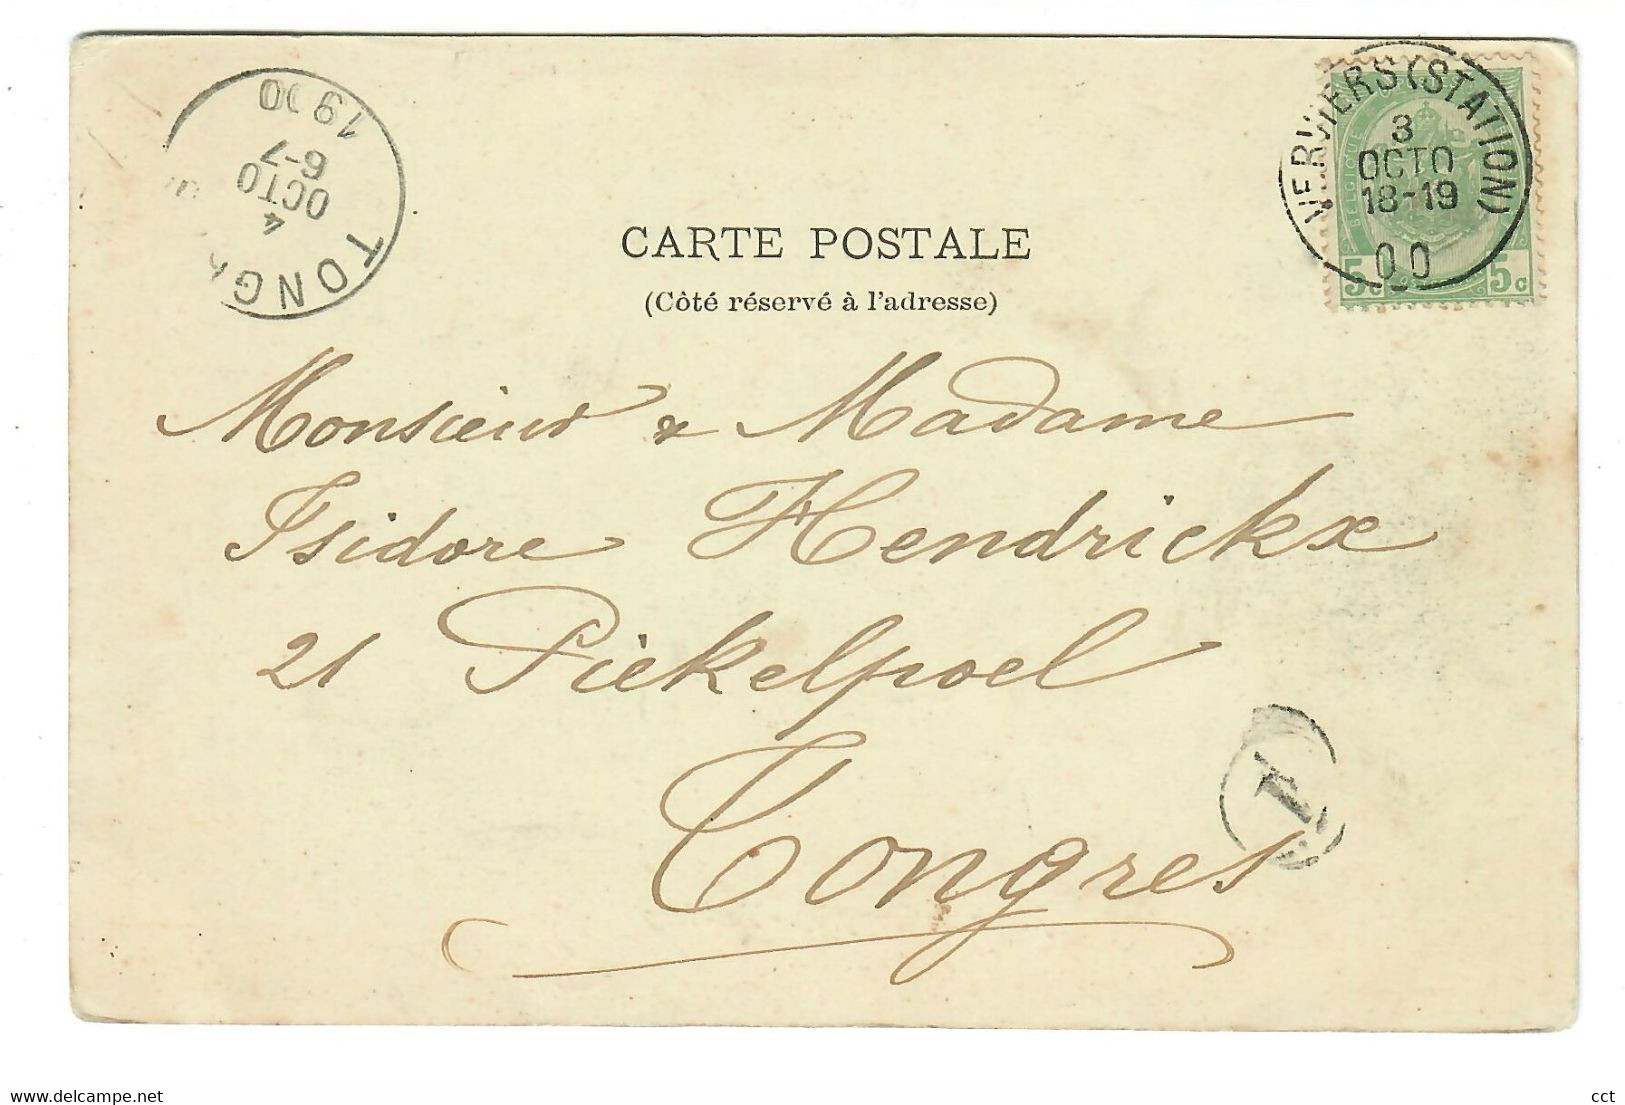 VERVIERS (STATION)
3
OCTO
18-19
00
BELGIQUE
5c 5c
4
OCTO
6-7
1900
CARTE POSTALE
(Côté réservé à l'adresse)
Monsieur & Madame
Isidore Hendrickx
21 Piekelpoel
Tongres
1
www.delcampe.net
cct